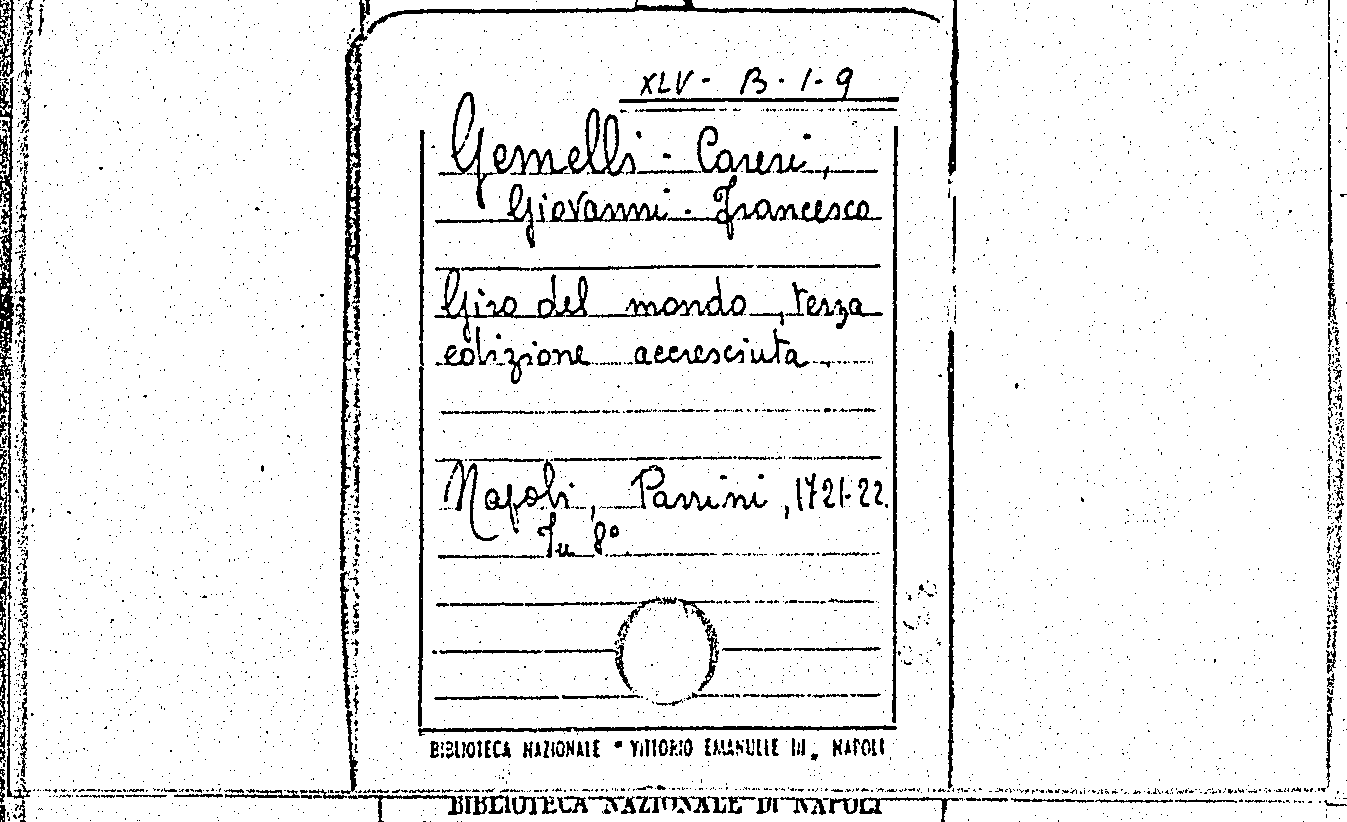 XLV - B - 1 - 9
Gemelli - Careri,
Giovanni - Francesco
Giro del mondo, terza
edizione accresciuta.
Napoli, Parrini, 1721-22.
In 8°
BIBLIOTECA NAZIONALE "VITTORIO EMANUELE III„ NAPOLI
BIBLIOTECA NAZIONALE DI NAPOLI